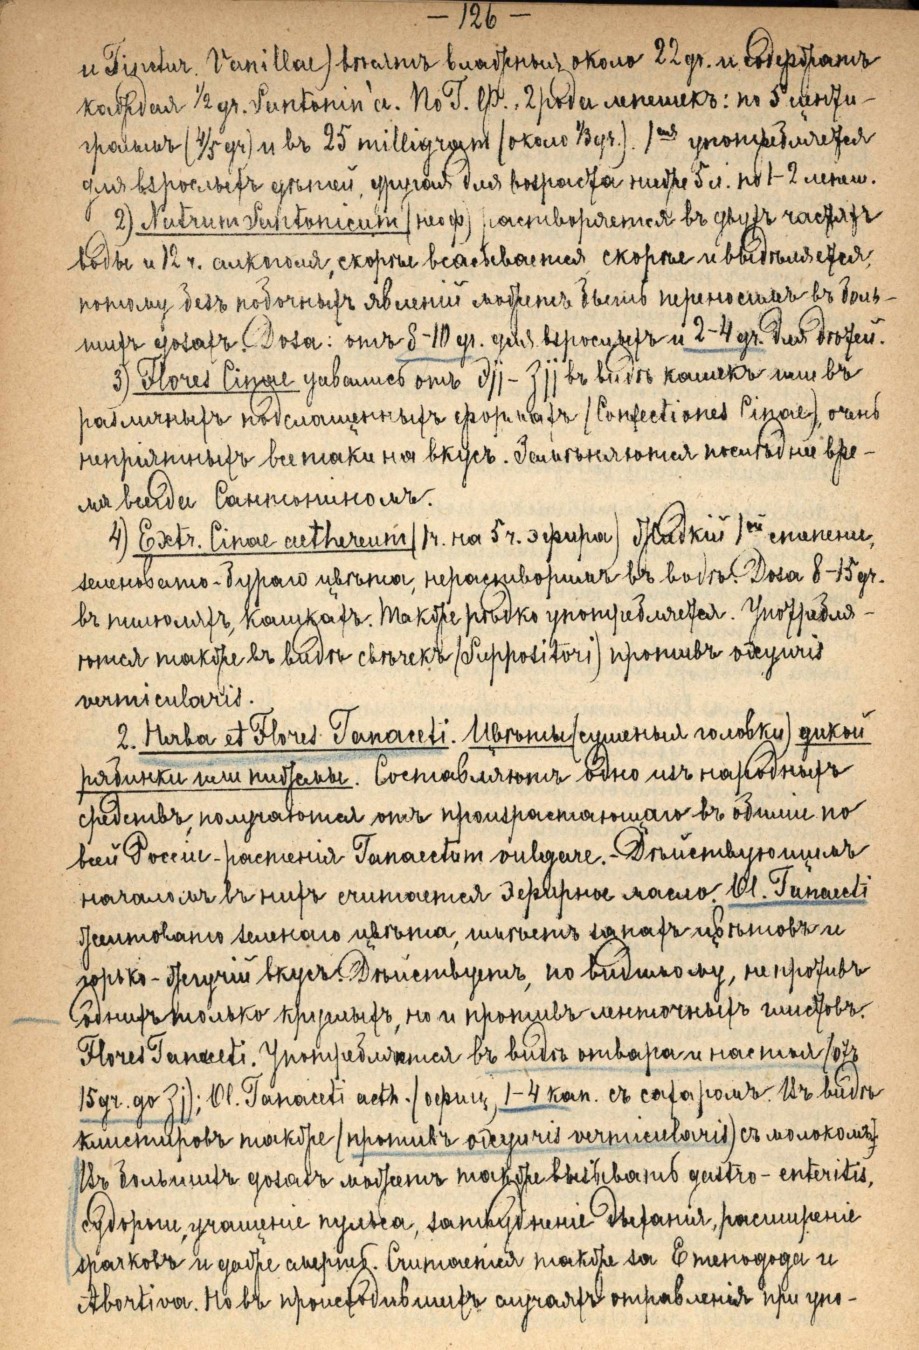 — 126 —
и Tinctur. Vanillae) вѣсятъ владѣныя около 22 gr. и содержатъ
каждая ½ gr. Santonin'a. По Г. Ф., 2 рода лепешекъ: по 5 центи-
граммъ (4/5 gr) и въ 25 milligramm (около ⅓ gr.). 1ая употребляется
для взрослыхъ дѣтей, другая для возраста ниже 5 л. по 1–2 лепеш.
2) Natrum Santonicum (неоф) растворяется въ двухъ частяхъ
воды и 12 ч. алкоголя, скорѣе всасывается, скорѣе и выдѣляется,
потому безъ побочныхъ явленій можетъ быть переносимъ въ боль-
шихъ дозахъ. Dosa: отъ 8–10 gr. для взрослыхъ и 2–4 gr. для дѣтей.
3) Flores Cinae давались отъ Ʒjj – ℨjjj въ видѣ кашекъ или въ
различныхъ подслащенныхъ формахъ (Confectiones Cinae), очень
непріятныхъ всетаки на вкусъ. Замѣняются послѣднее вре-
мя всегда Сантониномъ.
4) Extr. Cinae aethereum (1 ч. на 5 ч. эфира) Жидкій 1ой степени,
зеленовато-бураго цвѣта, нерастворимъ въ водѣ. Dosa 8–15 gr.
въ пилюляхъ, кашкахъ. Также рѣдко употребляется. Употребля-
ются также въ видѣ свѣчекъ (Suppositori) противъ oxyuris
vermicularis.
2. Herba et Flores Tanaceti. Цвѣты (сушеныя головки) дикой
рябинки или пижмы. Составляютъ одно изъ народныхъ
средствъ, получаются отъ произрастающаго въ обиліи по
всей Россіи - растенія Tanacetum vulgare. - Дѣйствующимъ
началомъ въ нихъ считается эфирное масло. Ol. Tanaceti
желтовато зеленаго цвѣта, имѣетъ запахъ цвѣтовъ и
горько-жгучій вкусъ. Дѣйствуетъ, по видимому, не противъ
однихъ только круглыхъ, но и противъ ленточныхъ глистовъ.
Flores Tanaceti. Употребляются въ видѣ отвара и настоя (отъ
15 gr. до ℨj); Ol. Tanaceti aeth. (офиц, 1–4 кап. съ сахаромъ. Въ видѣ
клистировъ также (противъ oxyuris vermicularis) съ молокомъ.
Въ большихъ дозахъ можетъ также вызывать gastro-enteritis,
судороги, учащеніе пульса, затрудненіе дыханія, расширеніе
зрачковъ и даже смерть. Считается также за Emenagoga и
Abortiva. Но въ происходившихъ случаяхъ отравленія при упо-